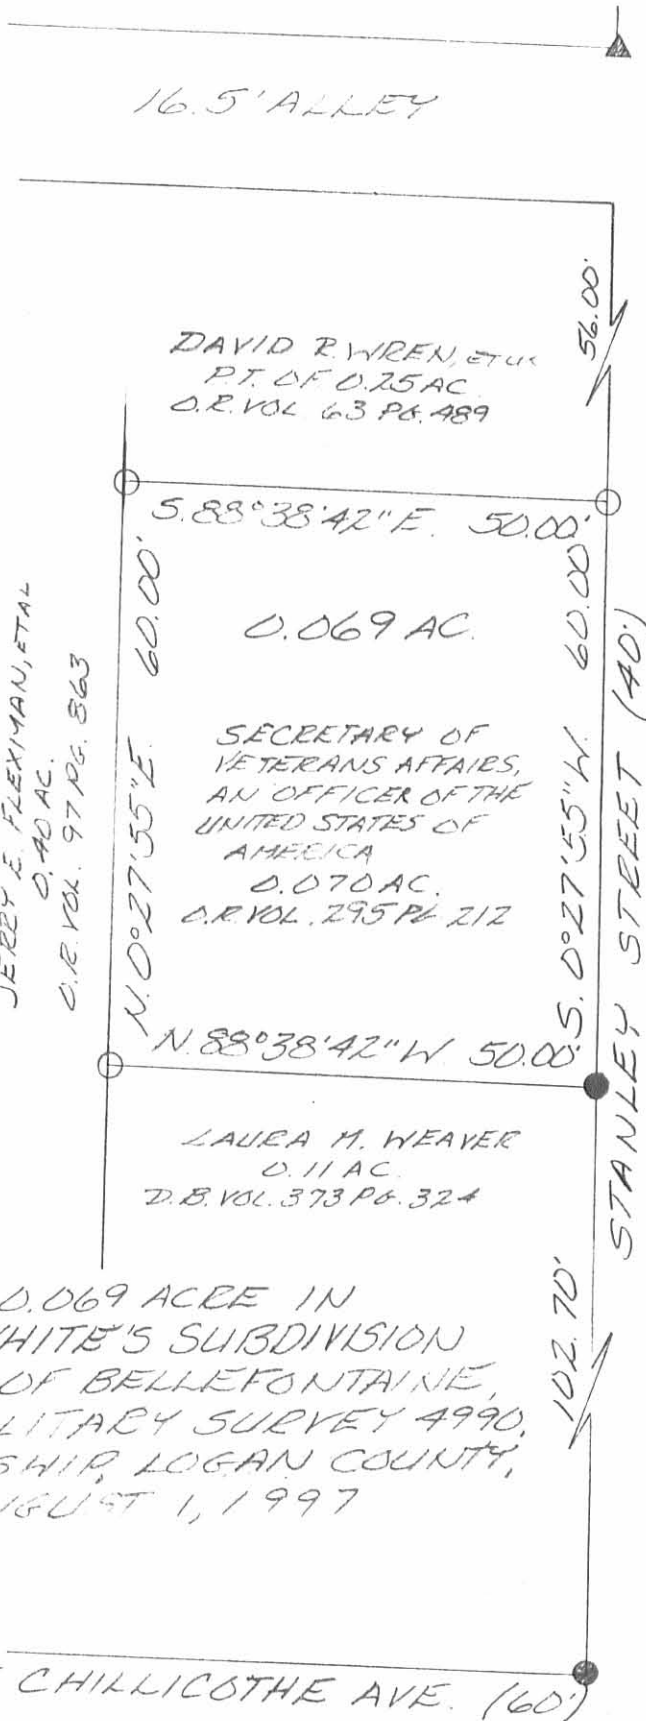 16.5' ALLEY
56.00'
DAVID R. WREN, ET UX
PT. OF 0.25 AC.
O.R. VOL 63 PG. 489
S. 88°38'42" E. 50.00'
60.00'
60.00'
0.069 AC.
JERRY E. FLEXIMAN, ET AL
0.40 AC.
O.R. VOL. 97 PG. 863
N. 0°27'55" E.
SECRETARY OF
VETERANS AFFAIRS,
AN OFFICER OF THE
UNITED STATES OF
AMERICA
0.070 AC.
O.R. VOL. 295 PG 212
S. 0°27'55" W.
STANLEY STREET (40')
N. 88°38'42" W. 50.00'
LAURA M. WEAVER
0.11 AC.
D.B. VOL. 373 PG. 324
102.70'
0.069 ACRE IN
HITE'S SUBDIVISION
OF BELLEFONTAINE,
LITARY SURVEY 4990,
SHIP, LOGAN COUNTY,
GUST 1, 1997
CHILLICOTHE AVE. (60')